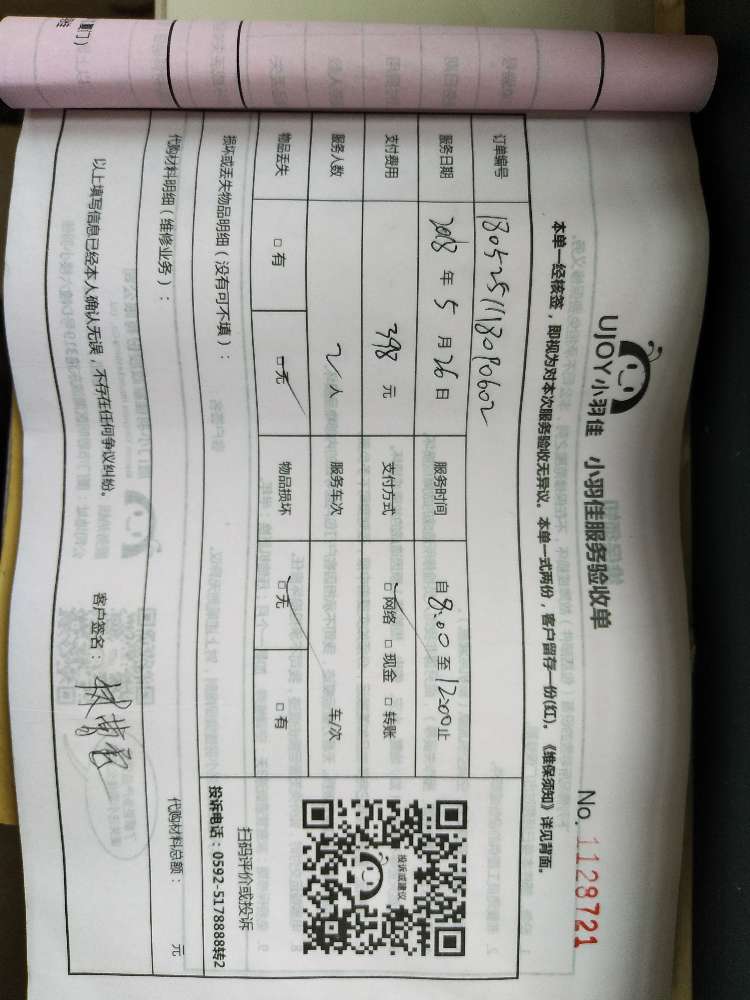 UJOY小羽佳 小羽佳服务验收单 No. 1128721
本单一经核签，即视为对本次服务验收无异议。本单一式两份，客户留存一份(红)。《维保须知》详见背面。
订单编号 1805251118090602
服务日期 2018 年 5 月 26 日 服务时间 自 8:00 至 12:00 止
支付费用 398 元 支付方式 □网络 □现金 □转账
服务人数 2 人 服务车次 车/次
物品丢失 □有 □无 物品损坏 □无 □有
投诉或建议
扫码评价或投诉
投诉电话：0592-5178888转2
损坏或丢失物品明细（没有可不填）：
代购材料明细（维修业务）： 代购材料总额： 元
以上填写信息已经本人确认无误，不存在任何争议纠纷。 客户签名：